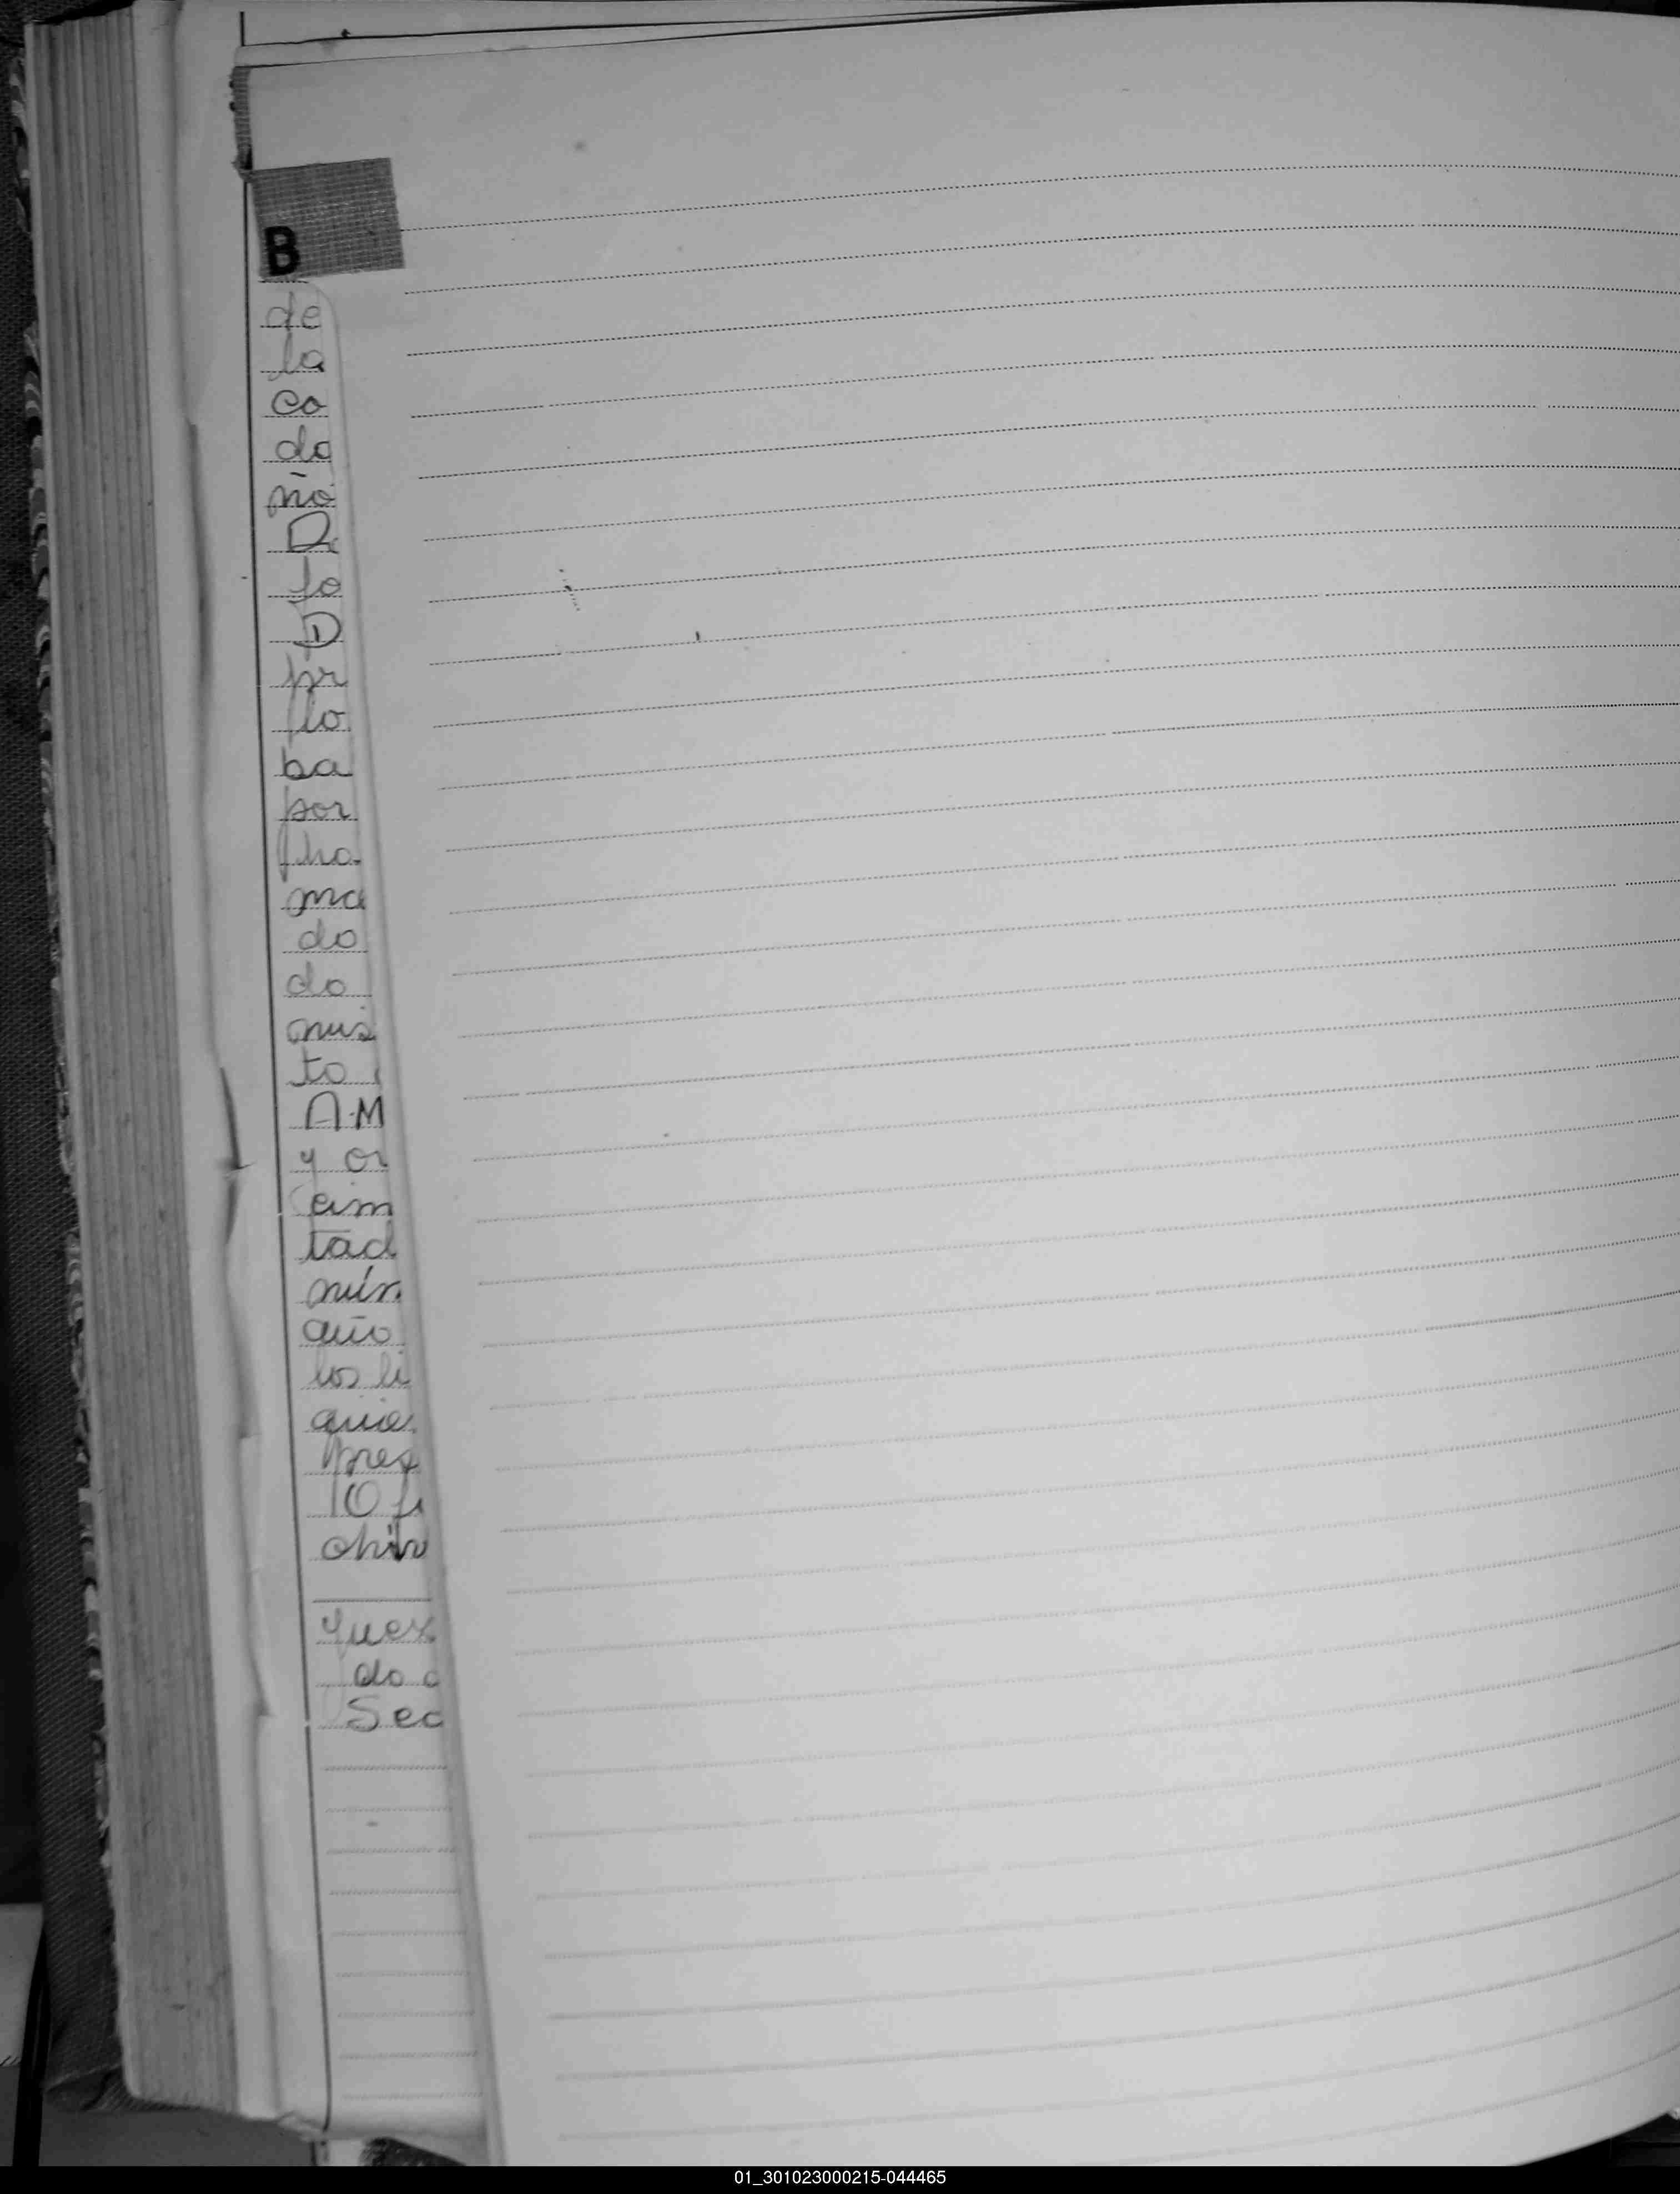 B
de
la
co
do
ño
D
fo
D
pr
lio
ba
por
cha
ma
do
do
mis
to
A.M
y or
cim
tad
mín
quio
los li
quie
pres
10 fi
chiv
y uex
do c
Sec
01_301023000215-044465